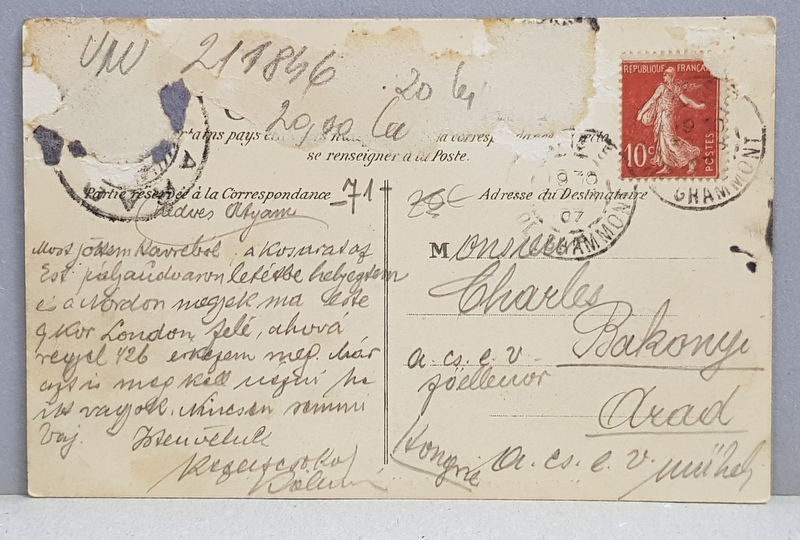 211846
20 lei
20,00 Lei
certains pays
la correspondance
se renseigner à la Poste.
REPUBLIQUE FRANÇAISE
10c
POSTES
GRAMMONT
19 30
07
GRAMMONT
Partie réservée à la Correspondance
-71+
Adresse du Destinataire
Kedves Atyám
Most jöttem Havreból, a kosarat az
Est pályaudvaron letétbe helyeztem
és a Nordon megyek ma este
9 kor London felé, ahová
reggel 426 érkezem meg. Már
azt is meg kell nézni ha
itt vagyok. Nincsen semmi
baj. Isten veletek
Kezeit csókolja
Kálmán
Monsieur
Charles
Bakonyi
a. cs. e. v.
főellenőr
Arad
Hongrie
a. cs. e. v. műhely